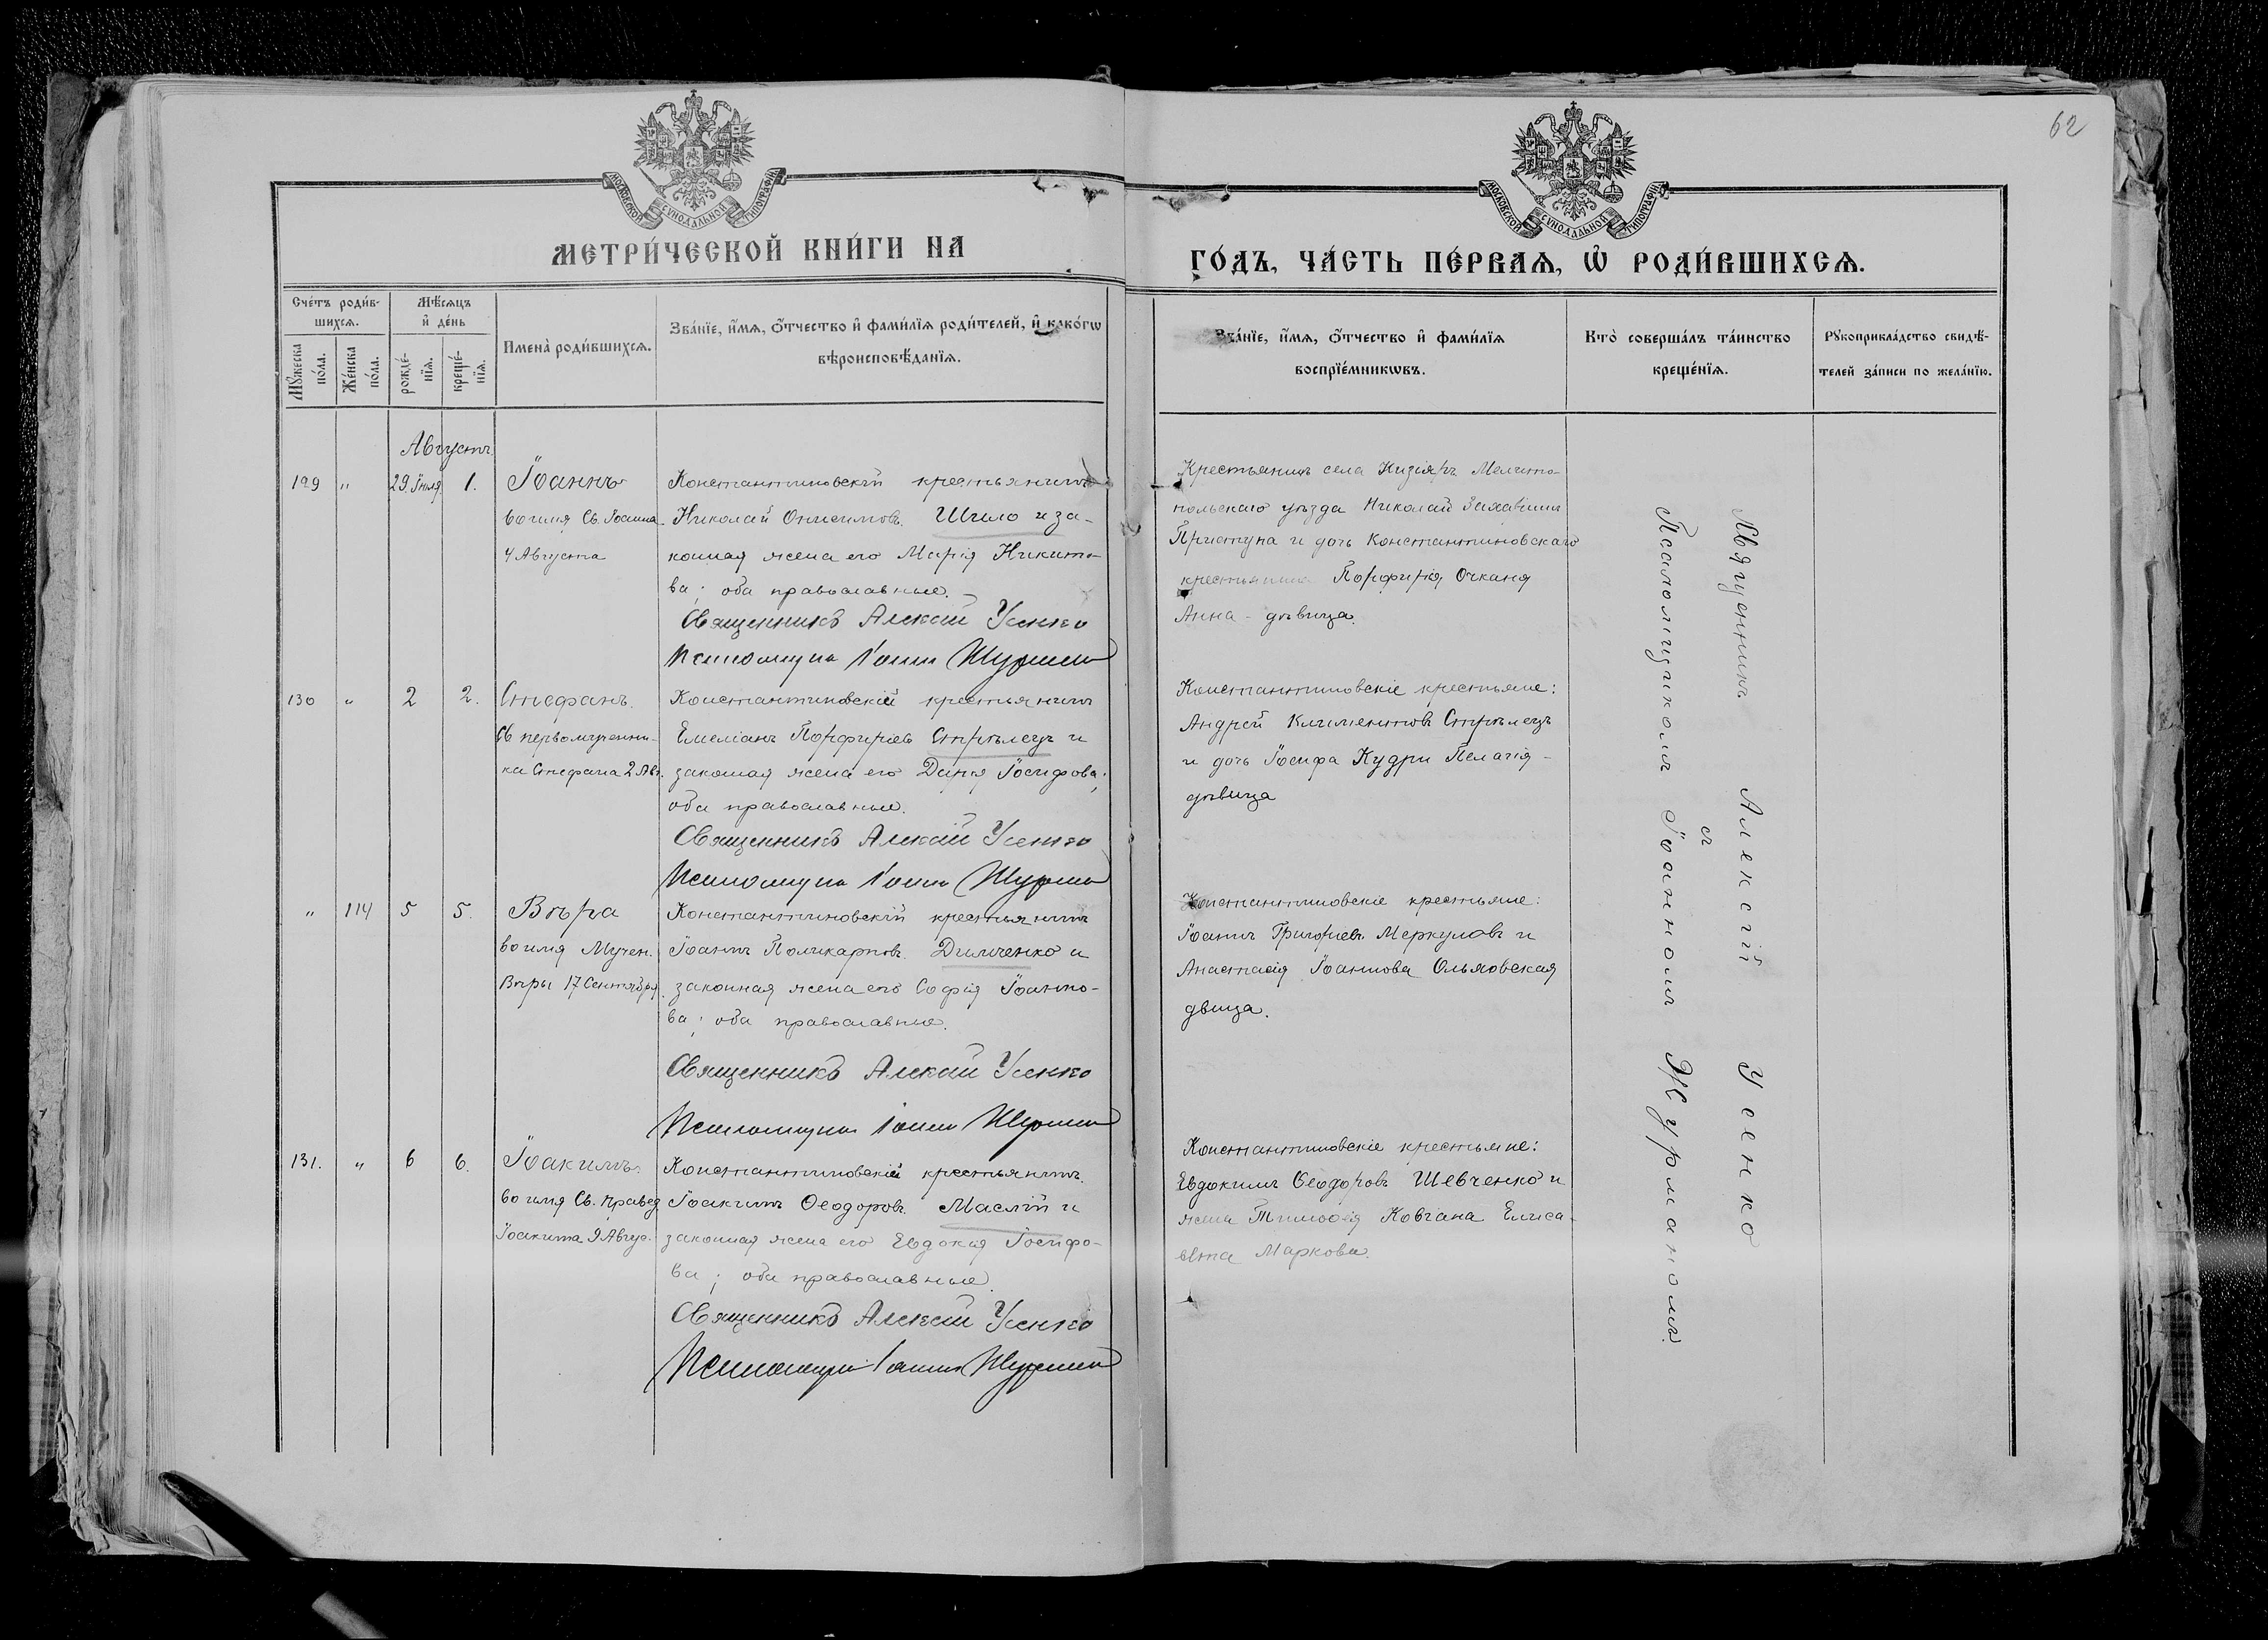 62
МОСКОВСКОЙ СѴНОДАЛЬНОЙ ТИПОГРАФІИ
МОСКОВСКОЙ СѴНОДАЛЬНОЙ ТИПОГРАФІИ
МЕТРИ́ЧЕСКОЙ КНИ́ГИ НА
ГО́ДЪ, ЧА́СТЬ ПЕ́РВАѦ, Ѡ҆ РОДИ́ВШИХСѦ.
Сче́тъ роди́в-
шихсѧ.
Мѣ́сѧцъ
и҆ де́нь
Мꙋ́жеска
по́ла.
Же́нска
по́ла.
рожде́-
нїѧ.
креще́-
нїѧ.
Имена̀ роди́вшихсѧ.
Зва́нїе, и҆́мѧ, ѻ҆́тчество и҆ фами́лїѧ роди́телей, и҆ како́гѡ
вѣроисповѣ́данїѧ.
Зва́нїе, и҆́мѧ, ѻ҆́тчество и҆ фами́лїѧ
воспрїе́мникѡвъ.
Кто̀ соверша́лъ та́инство
креще́нїѧ.
Рꙋкоприкла́дство свидѣ́-
телей за́писи по жела́нїю.
Августъ
129 " 29 Іюля 1.
Іоаннъ
во имя Св. Іоанна
4 Августа
Константиновскій крестьянинъ
Николай Онисимовъ Шило и за-
конная жена его Марія Никито-
ва; оба православные.
Священникъ Алексій Усенко
Псаломщикъ Іоаннъ Журманъ
Крестьянинъ села Кизіяръ Мелито-
польскаго уѣзда Николай Захаріинъ
Приступа и дочь Константиновскаго
крестьянина Порфирія Очканя
Анна - дѣвица.
130 " 2 2.
Стефанъ.
Св. первомученни-
ка Стефана 2 Авг.
Константиновскій крестьянинъ
Емеліанъ Порфиріевъ Стрѣлецъ и
законная жена его Дарія Іосифова;
оба православные.
Священникъ Алексій Усенко
Псаломщикъ Іоаннъ Журманъ
Константиновскіе крестьяне:
Андрей Климентовъ Стрѣлецъ
и дочь Іосифа Кудри Пелагія -
дѣвица
" 114 5 5.
Вѣра
во имя Мучен.
Вѣры 17 Сентября.
Константиновскій крестьянинъ
Іоаннъ Поликарповъ Димченко и
законная жена его Софія Іоанно-
ва; оба православные.
Священникъ Алексій Усенко
Псаломщикъ Іоаннъ Журманъ
Константиновскіе крестьяне:
Іоаннъ Григоріевъ Меркуловъ и
Анастасія Іоаннова Ольховская
двица.
131. " 6 6.
Іоакимъ
во имя Св. Правед.
Іоакима 9 Авгус.
Константиновскій крестьянинъ
Іоакимъ Ѳеодоровъ Маслій и
законная жена его Евдокія Іосифо-
ва; оба православные.
Священникъ Алексій Усенко
Псаломщикъ Іоаннъ Журманъ
Константиновскіе крестьяне:
Евдокимъ Ѳеодоровъ Шевченко и
жена Тимоѳея Ковгана Елиса-
вета Маркова.
Священникъ Алексій Усенко
съ
Псаломщикомъ Іоанномъ Журманомъ.